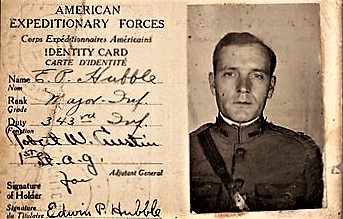 AMERICAN
EXPEDITIONARY FORCES
Corps Expéditionnaires Américains
IDENTITY CARD
CARTE D'IDENTITÉ
Name E. P. Hubble
Nom
Rank Major-Inf.
Grade
Duty 343rd Inf.
Fonction
Robert W. Austin
1st
A.G.
Adjutant General
For
Signature
of Holder
Signature
du Titulaire Edwin P. Hubble